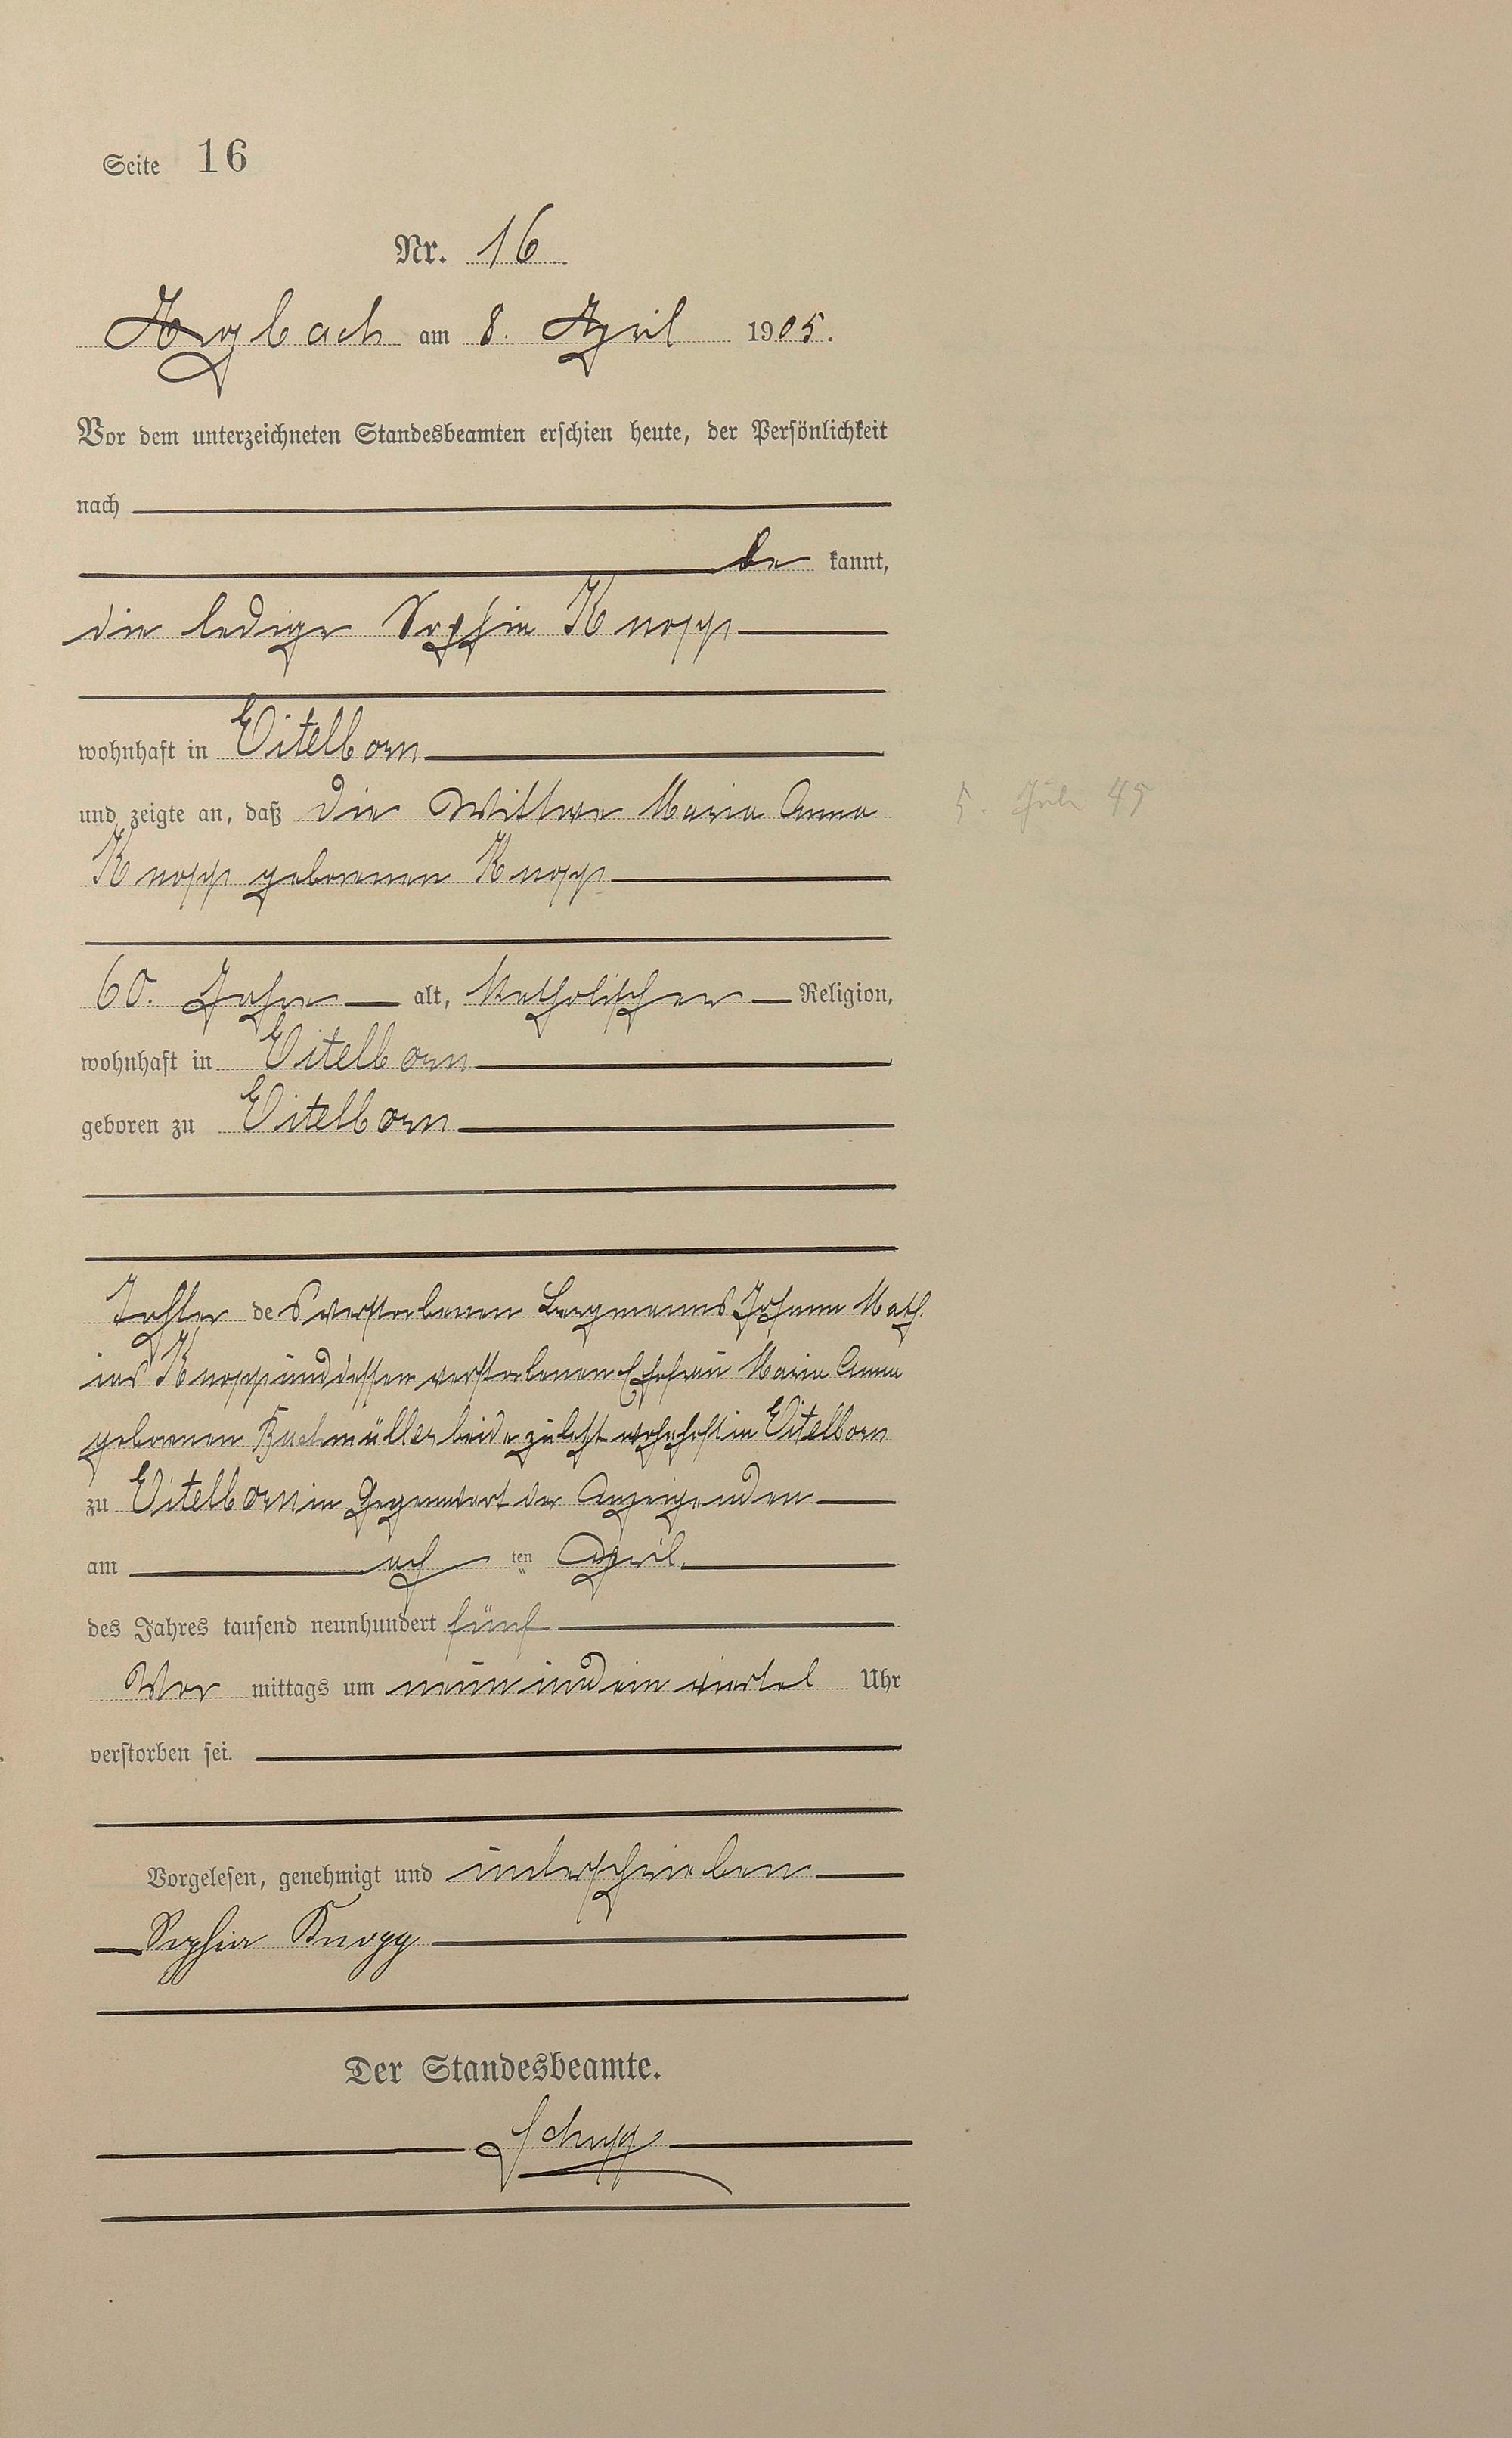 Seite 16
Nr. 16
Arzbach am 8. April 1905.
Vor dem unterzeichneten Standesbeamten erschien heute, der Persönlichkeit
nach
be kannt,
die ledige Sophie Knopp
wohnhaft in Eitelborn
und zeigte an, daß die Wittwe Maria Anna
Knopp geborenen Knopp
60. Jahre alt, katholischer Religion,
wohnhaft in Eitelborn
geboren zu Eitelborn
Tochter des verstorbenen Bergmanns Johann Math.
ias Knopp und dessen verstorbenen Ehefrau Maria Anna
geborenen Buchmüller beide zuletzt wohnhaft in Eitelborn
zu Eitelborn in Gegenwart der Anzeigenden
am ach ten April
des Jahres tausend neunhundert fünf
Vor mittags um neun und ein viertel Uhr
verstorben sei.
Vorgelesen, genehmigt und unterschrieben
Sophia Knopp
Der Standesbeamte.
Schupp